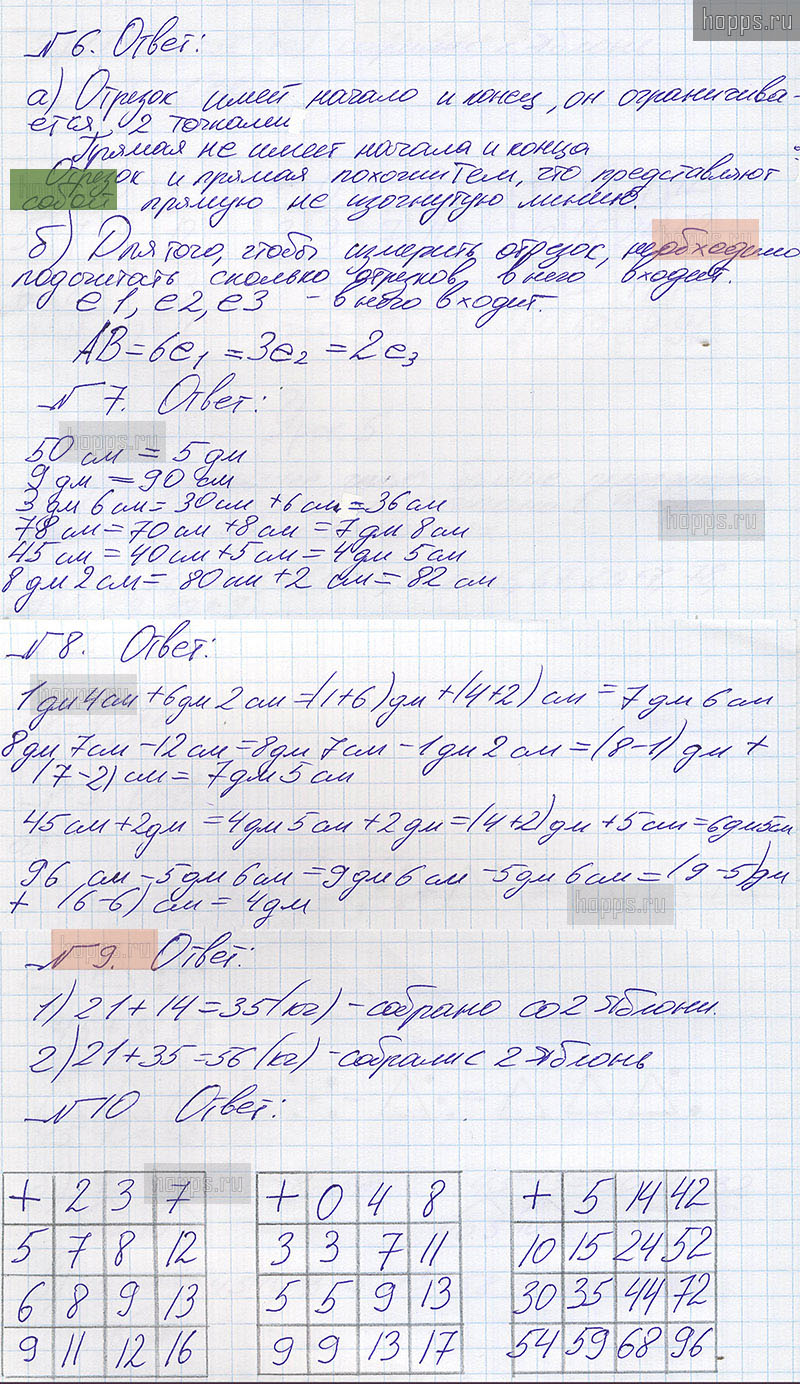 hopps.ru
№ 6. Ответ:
а) Отрезок имеет начало и конец, он ограничива-
ется 2 точками
Прямая не имеет начала и конца
Отрезок и прямая похожи тем, что представляют
собой прямую не изогнутую линию.
б) Для того, чтобы измерить отрезок, необходимо
подсчитать сколько отрезков в него входит.
e1, e2, e3 - в него входит.
AB = 6e₁ = 3e₂ = 2e₃
№ 7. Ответ:
hopps.ru
50 см = 5 дм
9 дм = 90 см
3 дм 6 см = 30 см + 6 см = 36 см
78 см = 70 см + 8 см = 7 дм 8 см
hopps.ru
45 см = 40 см + 5 см = 4 дм 5 см
8 дм 2 см = 80 см + 2 см = 82 см
№ 8. Ответ:
hopps.ru
1 дм 4 см + 6 дм 2 см = (1+6) дм + (4+2) см = 7 дм 6 см
8 дм 7 см - 12 см = 8 дм 7 см - 1 дм 2 см = (8-1) дм +
(7-2) см = 7 дм 5 см
45 см + 2 дм = 4 дм 5 см + 2 дм = (4+2) дм + 5 см = 6 дм 5 см
96 см - 5 дм 6 см = 9 дм 6 см - 5 дм 6 см = (9-5) дм
+ (6-6) см = 4 дм
hopps.ru
№ 9. Ответ:
1) 21 + 14 = 35 (кг) - собрано со 2 яблони.
2) 21 + 35 = 56 (кг) - собрали с 2 яблонь
№ 10 Ответ:
hopps.ru
+ 2 3 7 + 0 4 8 + 5 14 42
5 7 8 12 3 3 7 11 10 15 24 52
6 8 9 13 5 5 9 13 30 35 44 72
9 11 12 16 9 9 13 17 54 59 68 96